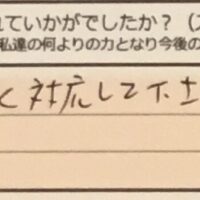 れていかがでしたか？（
私達の何よりの力となり今後の
く対応して下さ